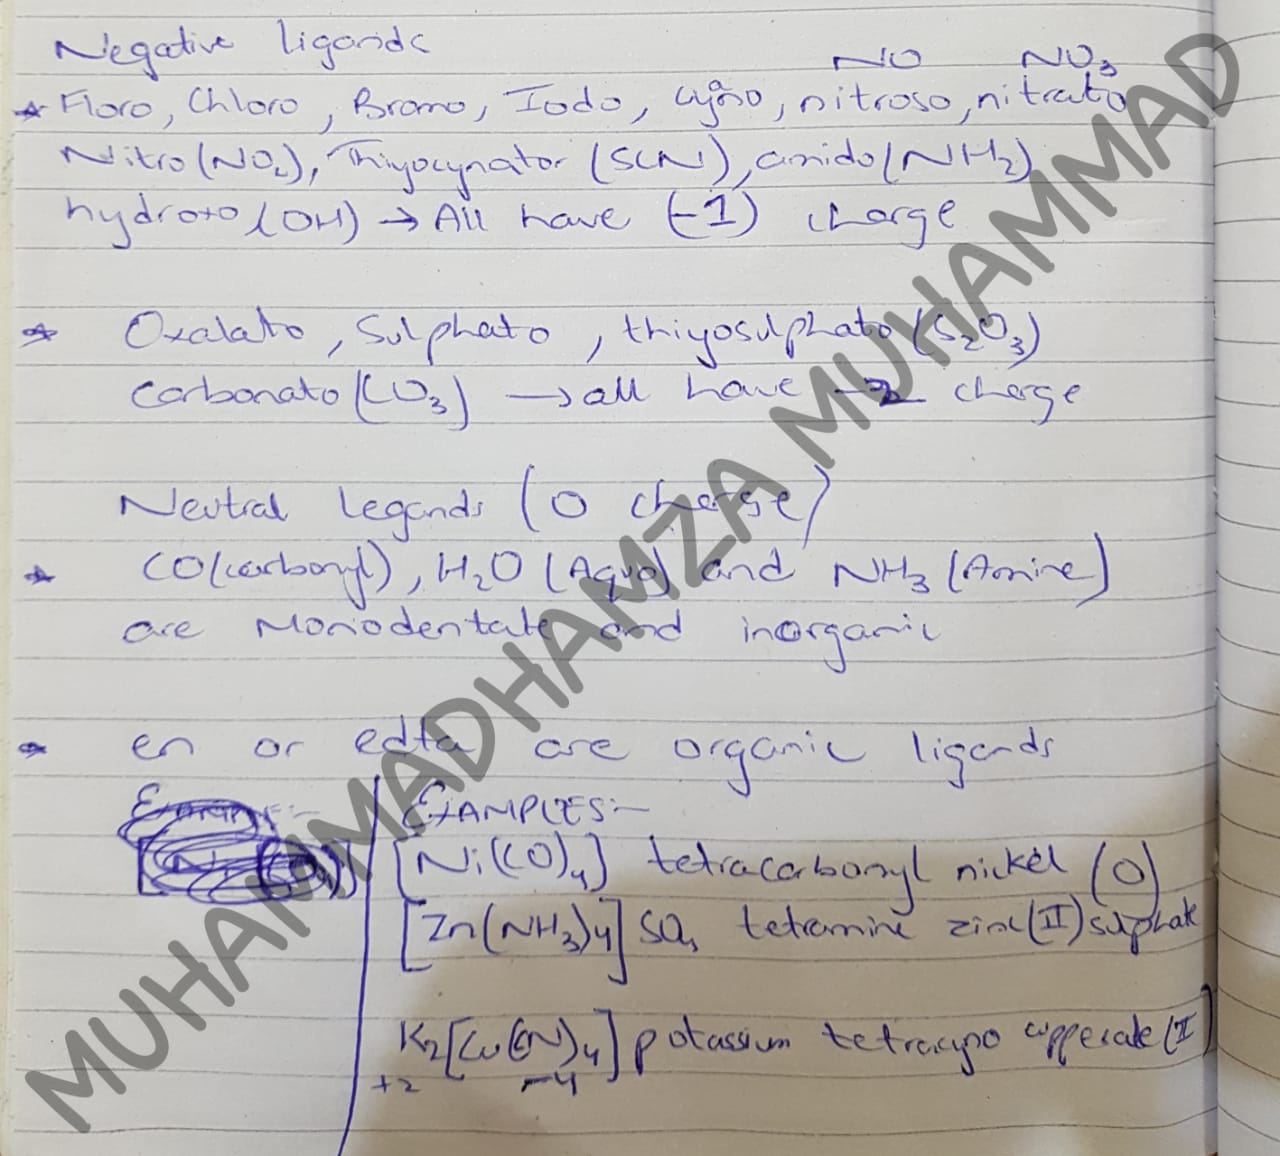 Negative ligands
NO NO3
* Floro, Chloro, Bromo, Iodo, Cyno, nitroso, nitrato
Nitro(NO2), Thiyocynator (SCN), amido(NH2)
hydroxo (OH) → All have (-1) charge
* Oxalato, Sulphato, thiyosulphato(S2O3)
carbonato(CO3) → all have -2 charge
Neutral Legands (0 charge)
* CO(carbonyl), H2O (Aqua) and NH3 (Amine)
are Monodentate and inorganic
* en or edta are organic ligands
EXAMPLES:-
[Ni(CO)4] tetracarbonyl nickel (0)
[Zn(NH3)4]SO4 tetramine zinc(II)sulphate
K2[Cu(CN)4] potassium tetracyno cupperate(I)
+2 -4
MUHAMMADHAMZA MUHAMMAD